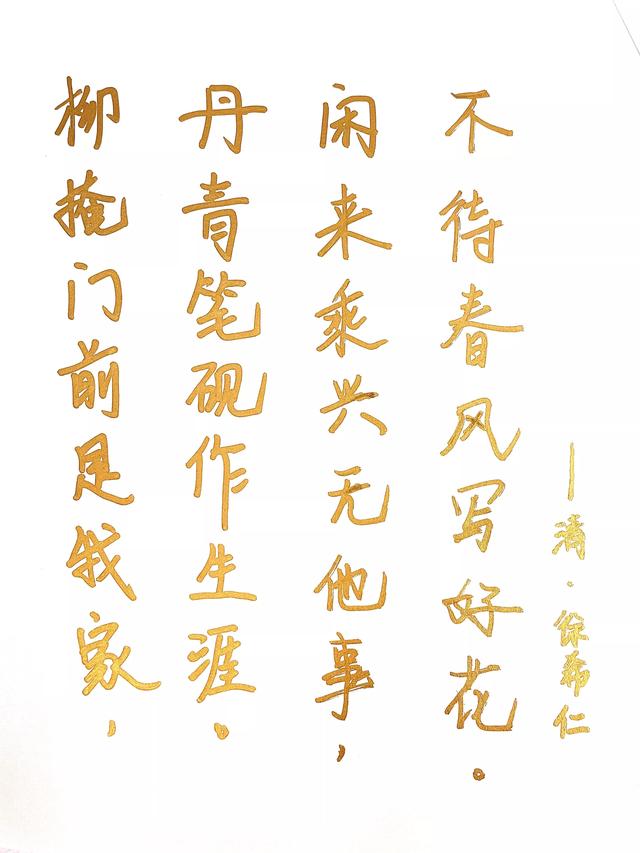 柳掩门前是我家，
丹青笔砚作生涯。
闲来乘兴无他事，
不待春风写好花。
—清·徐希仁